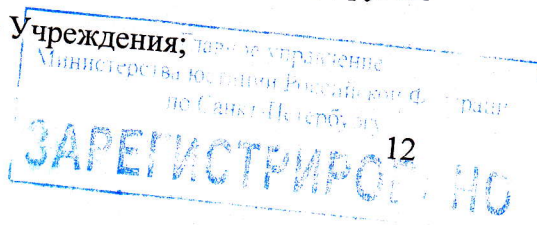 Учреждения;
Главное управление
Министерства юстиции Российской Федерации
по Санкт-Петербургу
12
ЗАРЕГИСТРИРОВАНО